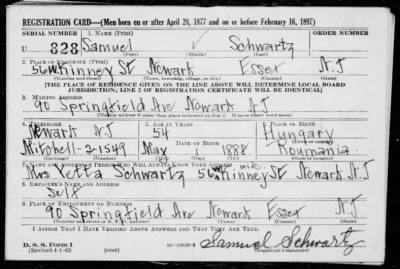 REGISTRATION CARD—(Men born on or after April 28, 1877 and on or before February 16, 1897)
SERIAL NUMBER 1. NAME (Print) ORDER NUMBER
U 828 Samuel Schwartz
(First) (Middle) (Last)
2. PLACE OF RESIDENCE (Print)
56 W. Kinney St Newark Essex N.J
(Number and street) (Town, township, village, or city) (County) (State)
[THE PLACE OF RESIDENCE GIVEN ON THE LINE ABOVE WILL DETERMINE LOCAL BOARD
JURISDICTION; LINE 2 OF REGISTRATION CERTIFICATE WILL BE IDENTICAL]
3. MAILING ADDRESS
90 Springfield Ave Newark N.J
[Mailing address if other than place indicated on line 2. If same insert word same]
4. TELEPHONE 5. AGE IN YEARS 6. PLACE OF BIRTH
Newark N.J 54 Hungary
DATE OF BIRTH
Mitchell-2-1549 May 1 1888 Roumania
7. NAME AND ADDRESS OF PERSON WHO WILL ALWAYS KNOW YOUR ADDRESS
wife
Mrs Yetta Schwartz 56 W. Kinney St Newark N.J
8. EMPLOYER'S NAME AND ADDRESS
Self
9. PLACE OF EMPLOYMENT OR BUSINESS
90 Springfield Ave Newark Essex N.J
(Number and street or R. F. D. number) (Town) (County) (State)
I AFFIRM THAT I HAVE VERIFIED ABOVE ANSWERS AND THAT THEY ARE TRUE.
D. S. S. Form 1
(Revised 4-1-42) (over) Samuel Schwartz